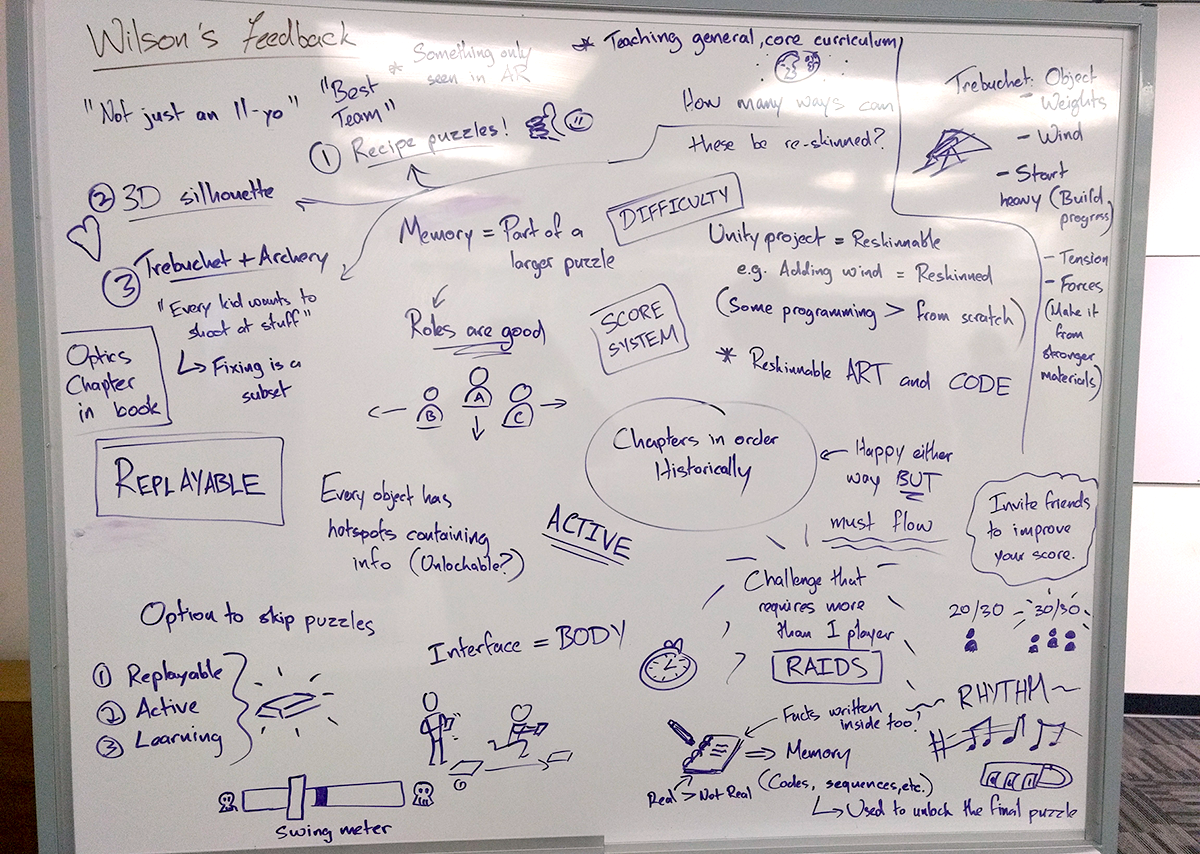 Wilson's Feedback
* Something only
seen in AR
* Teaching general, core curriculum
"Not just an 11-yo"
"Best
Team"
① Recipe puzzles!
How many ways can
these be re-skinned?
Trebuchet: Object
- Weights
- Wind
- Start
heavy (Build
progress)
- Tension
- Forces
(Make it
from
stronger
materials)
② 3D silhouette
③ Trebuchet + Archery
"Every kid wants to
shoot at stuff"
↳ Fixing is a
subset
Optics
Chapter
in book
REPLAYABLE
Memory = Part of a
larger puzzle
Roles are good
B
A
C
DIFFICULTY
SCORE
SYSTEM
Unity project = Reskinnable
e.g. Adding wind = Reskinned
(Some programming > from scratch)
* Reskinnable ART and CODE
Chapters in order
Historically
← Happy either
way BUT
must flow
Invite friends
to improve
your score.
20/30
30/30
Every object has
hotspots containing
info (Unlockable?)
ACTIVE
Challenge that
requires more
than 1 player
RAIDS
Option to skip puzzles
① Replayable
② Active
③ Learning
Interface = BODY
①
Swing meter
~ RHYTHM ~
Facts written
inside too!
⇒ Memory
(Codes, sequences, etc.)
↳ Used to unlock the final puzzle
Real > Not Real